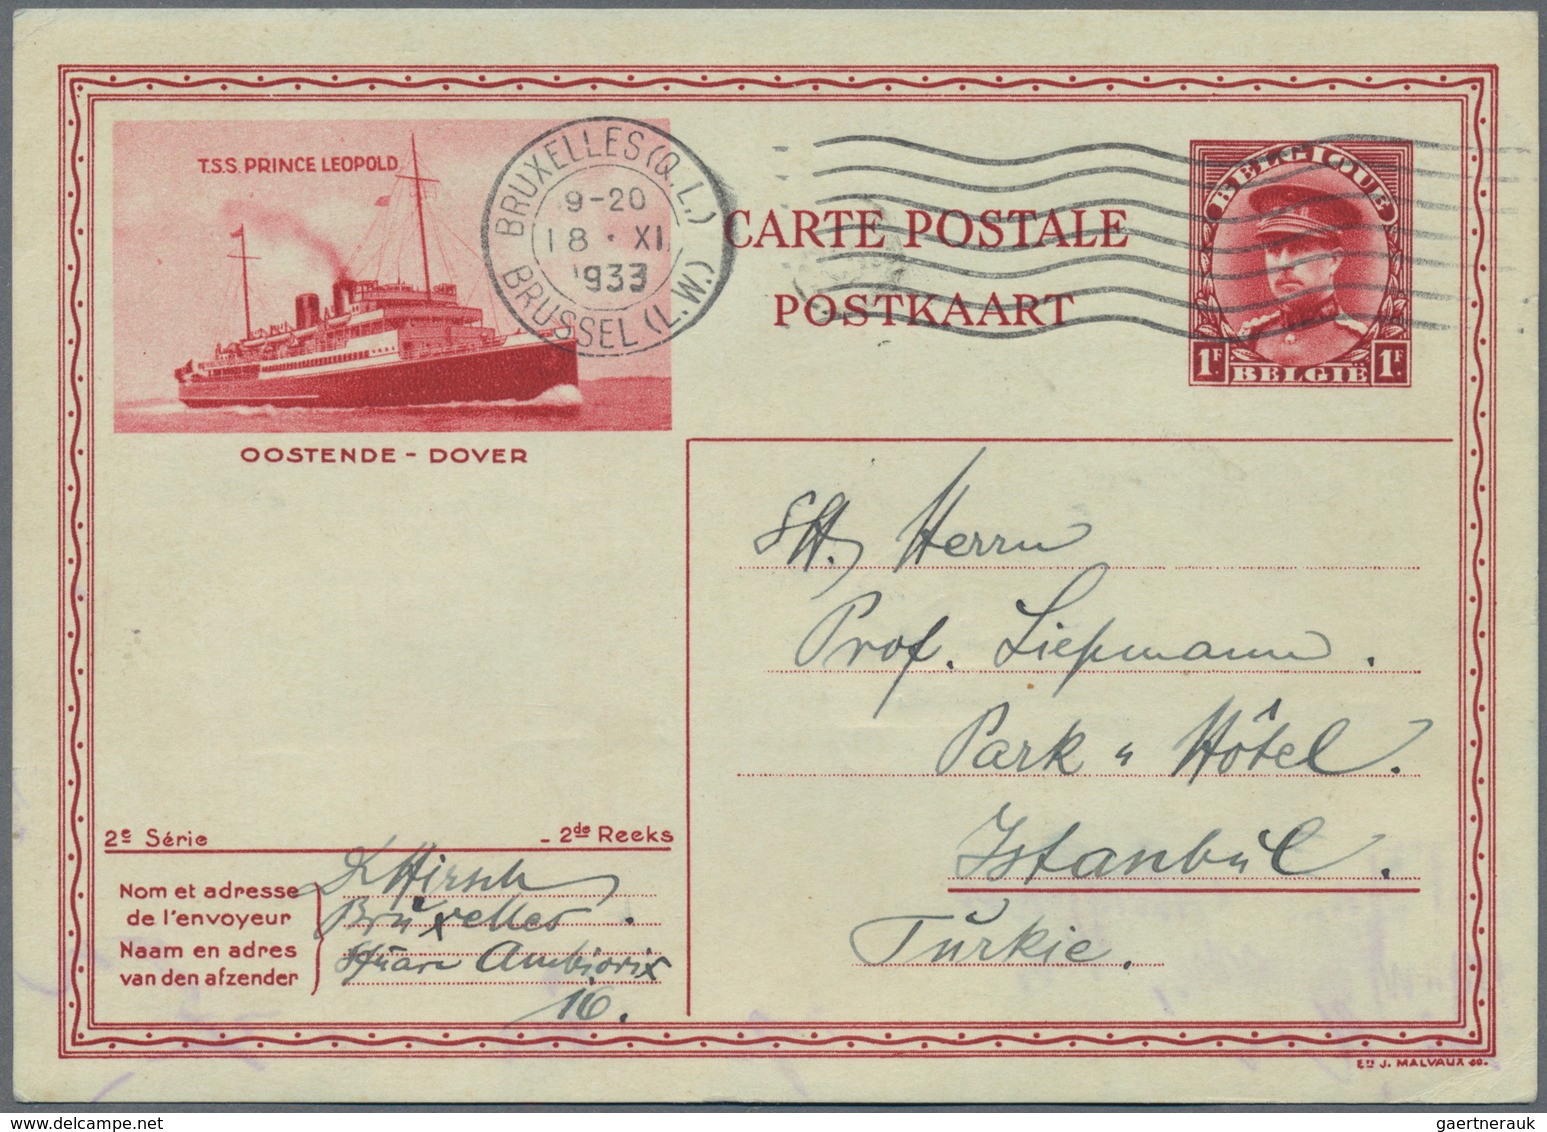 T.S.S. PRINCE LEOPOLD
OOSTENDE - DOVER
BRUXELLES (Q.L.)
9-20
18 · XI
1933
BRUSSEL (L.W.)
CARTE POSTALE
POSTKAART
BELGIQUE
1F BELGIË 1F
Herrn
Prof. Liepmann.
Park Hôtel.
Istanbul.
Türkie.
2e Série - 2de Reeks
Nom et adresse
de l'envoyeur
Naam en adres
van den afzender
Hirsch
Brüxelles.
Ambiorix
16.
J. MALVAUX
gaertnerauk @ delcampe.net